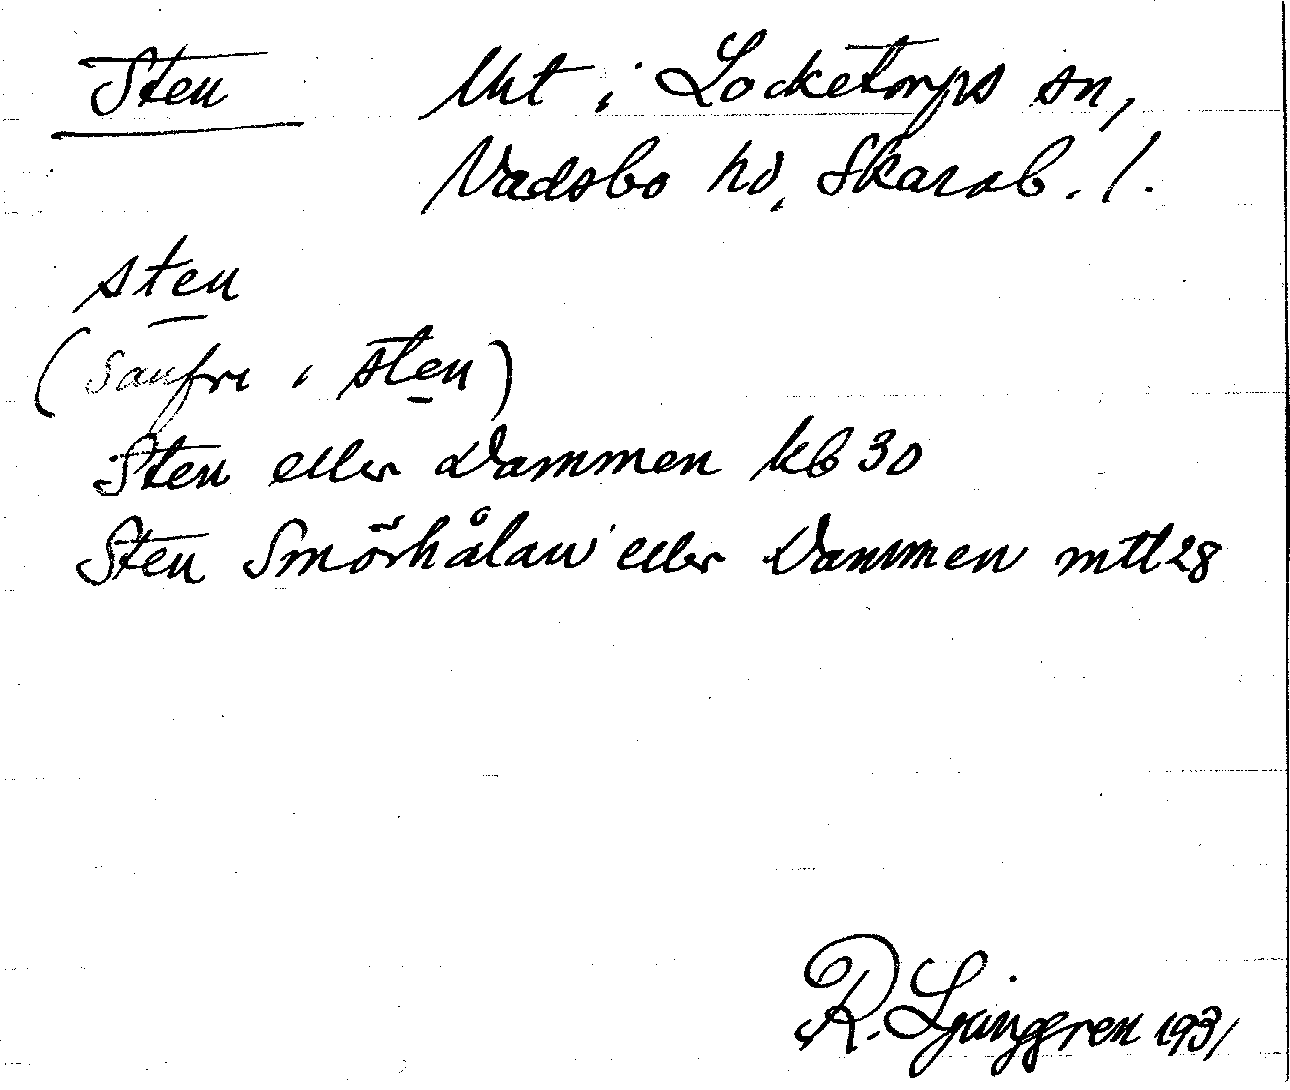 Sten Utt i Locketorps sn,
Vadsbo hd, Skarab. l.
sten
( i sten)
Sten eller Dammen kb 30
Sten Smörhålan eller Dammen mtl 28
R. Ljunggren 1931